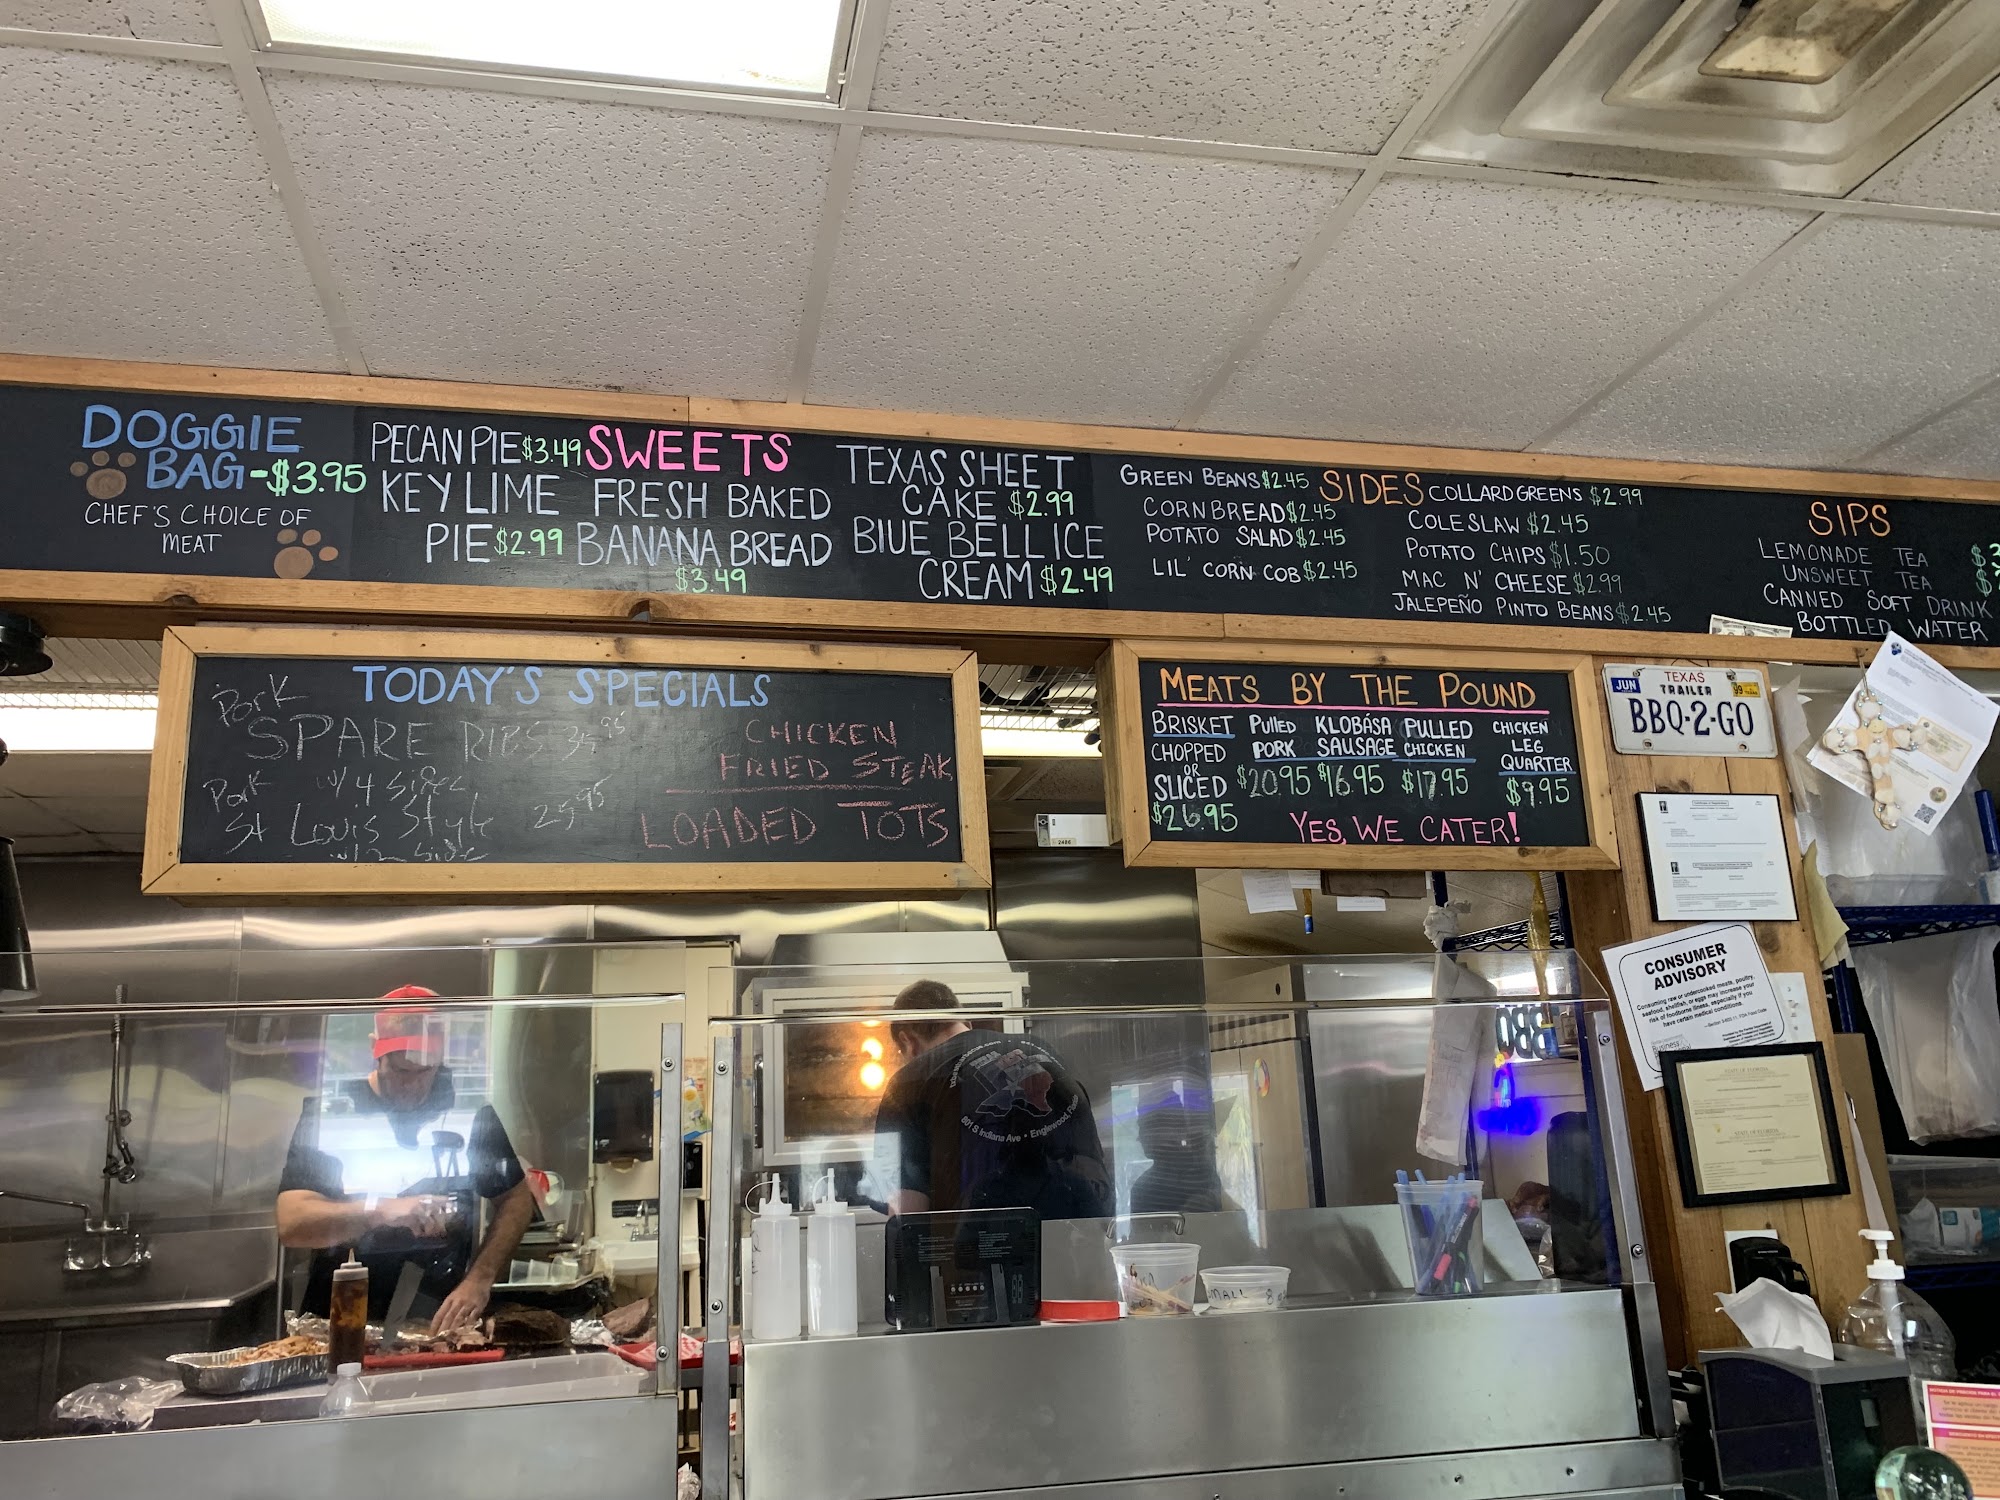 DOGGIE
BAG - $3.95
CHEF'S CHOICE OF
MEAT
PECAN PIE $3.49
KEY LIME
PIE $2.99
SWEETS
FRESH BAKED
BANANA BREAD
$3.49
TEXAS SHEET
CAKE $2.99
BLUE BELL ICE
CREAM $2.49
GREEN BEANS $2.45
CORNBREAD $2.45
POTATO SALAD $2.45
LIL' CORN COB $2.45
SIDES
COLLARD GREENS $2.99
COLESLAW $2.45
POTATO CHIPS $1.50
MAC N' CHEESE $2.99
JALEPEÑO PINTO BEANS $2.45
SIPS
LEMONADE TEA
UNSWEET TEA
CANNED SOFT DRINK
BOTTLED WATER
TODAY'S SPECIALS
Pork
SPARE RIBS 35.95
w/ 4 sides
Pork
St Louis Style 25.95
w/2 side
CHICKEN
FRIED STEAK
LOADED TOTS
MEATS BY THE POUND
BRISKET
CHOPPED
OR
SLICED
$26.95
Pulled
PORK
$20.95
KLOBÁSA
SAUSAGE
$16.95
PULLED
CHICKEN
$17.95
CHICKEN
LEG
QUARTER
$9.95
YES, WE CATER!
JUN
TEXAS
99
TRAILER
BBQ-2-GO
CONSUMER
ADVISORY
Consuming raw or undercooked meats, poultry,
seafood, shellfish, or eggs may increase your
risk of foodborne illness, especially if you
have certain medical conditions.
STATE OF FLORIDA
STATE OF FLORIDA
801 S Indiana Ave • Englewood, Florida
BBQ
2486
SMALL